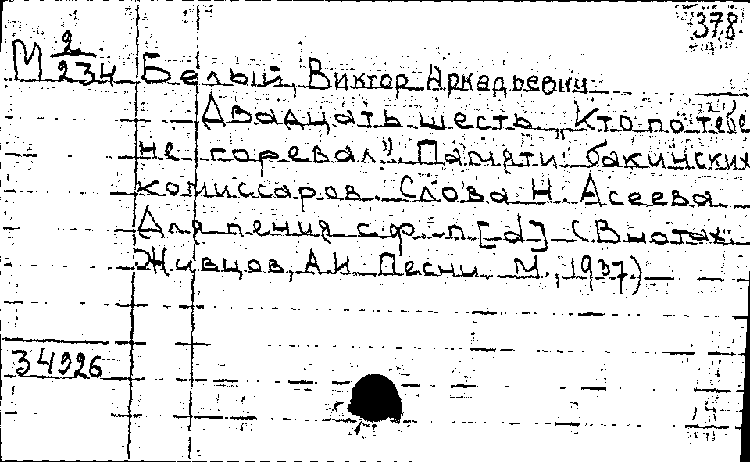 378
М 2/234 Белый, Виктор Аркадьевич
Двадцать шесть „Кто по тебе
не горевал". Памяти бакинских
комиссаров. Слова Н. Асеева
Для пения с ф.-п. [-d] (В нотах:
Живцов, А.И. Песни. М., 1937.)
34926